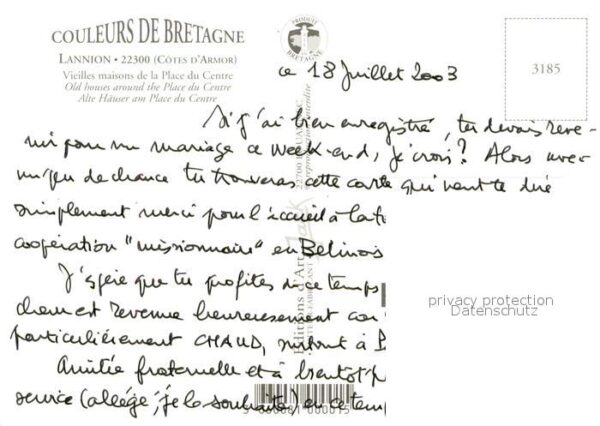 COULEURS DE BRETAGNE
LANNION • 22300 (CÔTES D'ARMOR)
Vieilles maisons de la Place du Centre
Old houses around the Place du Centre
Alte Häuser am Place du Centre
PRODUIT
BRETAGNE
3185
ce 18 Juillet 2003
Si j'ai bien enregistré, tu devais reve-
nir pour un mariage ce week-end, je crois ? Alors avec
un peu de chance tu trouveras cette carte qui veut te dire
simplement merci pour l'accueil à la
coopération "missionnaire" en Belinois
J'espère que tu profites de ce temps
est revenue heureusement car
particulièrement CHAUD, surtout à
Amitié fraternelle et à bientôt
service (allégé, je le souhaite) en ce tem
Editions d'Art JACK
privacy protection
Datenschutz